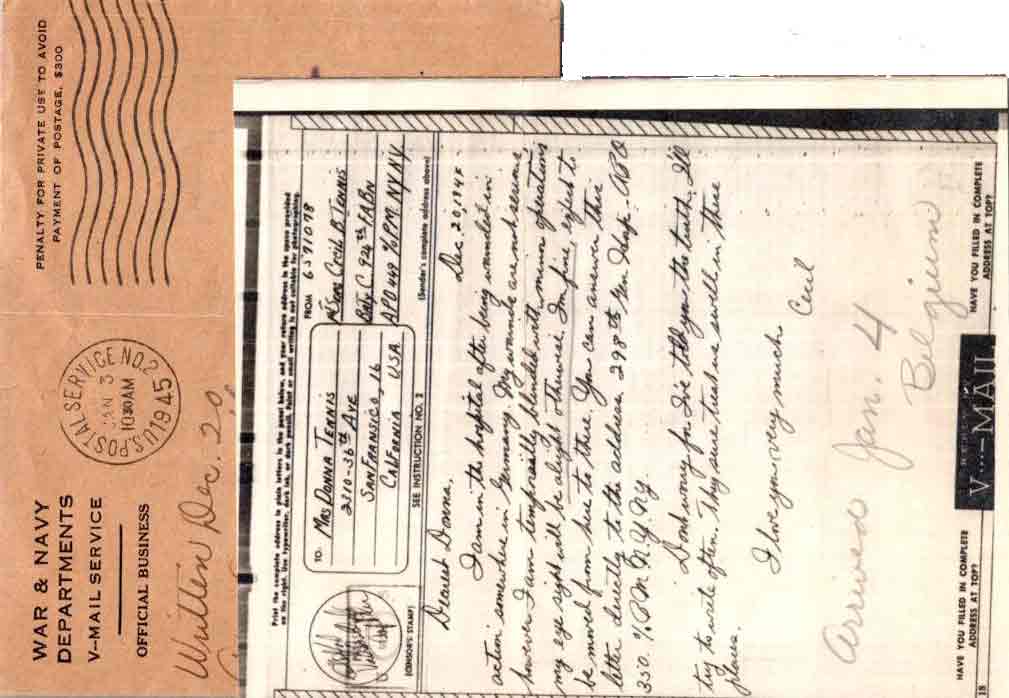 WAR & NAVY
DEPARTMENTS
V--MAIL SERVICE
OFFICIAL BUSINESS
U.S. POSTAL SERVICE NO. 2
JAN 3
1030 AM
1945
PENALTY FOR PRIVATE USE TO AVOID
PAYMENT OF POSTAGE, $300
Written Dec. 20
Print the complete address in plain letters in the panel below, and your return address in the space provided
on the right. Use typewriter, dark ink, or dark pencil. Faint or small writing is not suitable for photographing.
TO:
MRS DONNA TENNIS
2310-36th AVE
SAN FRANSICO, 16
CALIFORNIA, USA.
FROM 6571078
Cecil B. TENNIS
Bty C 924th F.A.Bn
APO 449 % P.M. NY NY
(CENSOR'S STAMP)
SEE INSTRUCTION NO. 2
(Sender's complete address above)
Dec. 20, 1944
Dearest Donna,
I am in the hospital after being wounded in
action somewhere in Germany. My wounds are not serious,
however I am temporarily blinded with minor operations
my eye sight will be alright otherwise I'm fine, expect to
be moved from here to there. You can answer this
letter directly to the address, 298th Gen Hosp. - APO
350 % P.M. N.Y. N.Y.
Don't worry for I've told you the truth. I'll
try to write often. They sure treat us swell in these
places.
I love you very much
Cecil
Arrived Jan. 4
Belgium
HAVE YOU FILLED IN COMPLETE
ADDRESS AT TOP?
V···—MAIL
HAVE YOU FILLED IN COMPLETE
ADDRESS AT TOP?